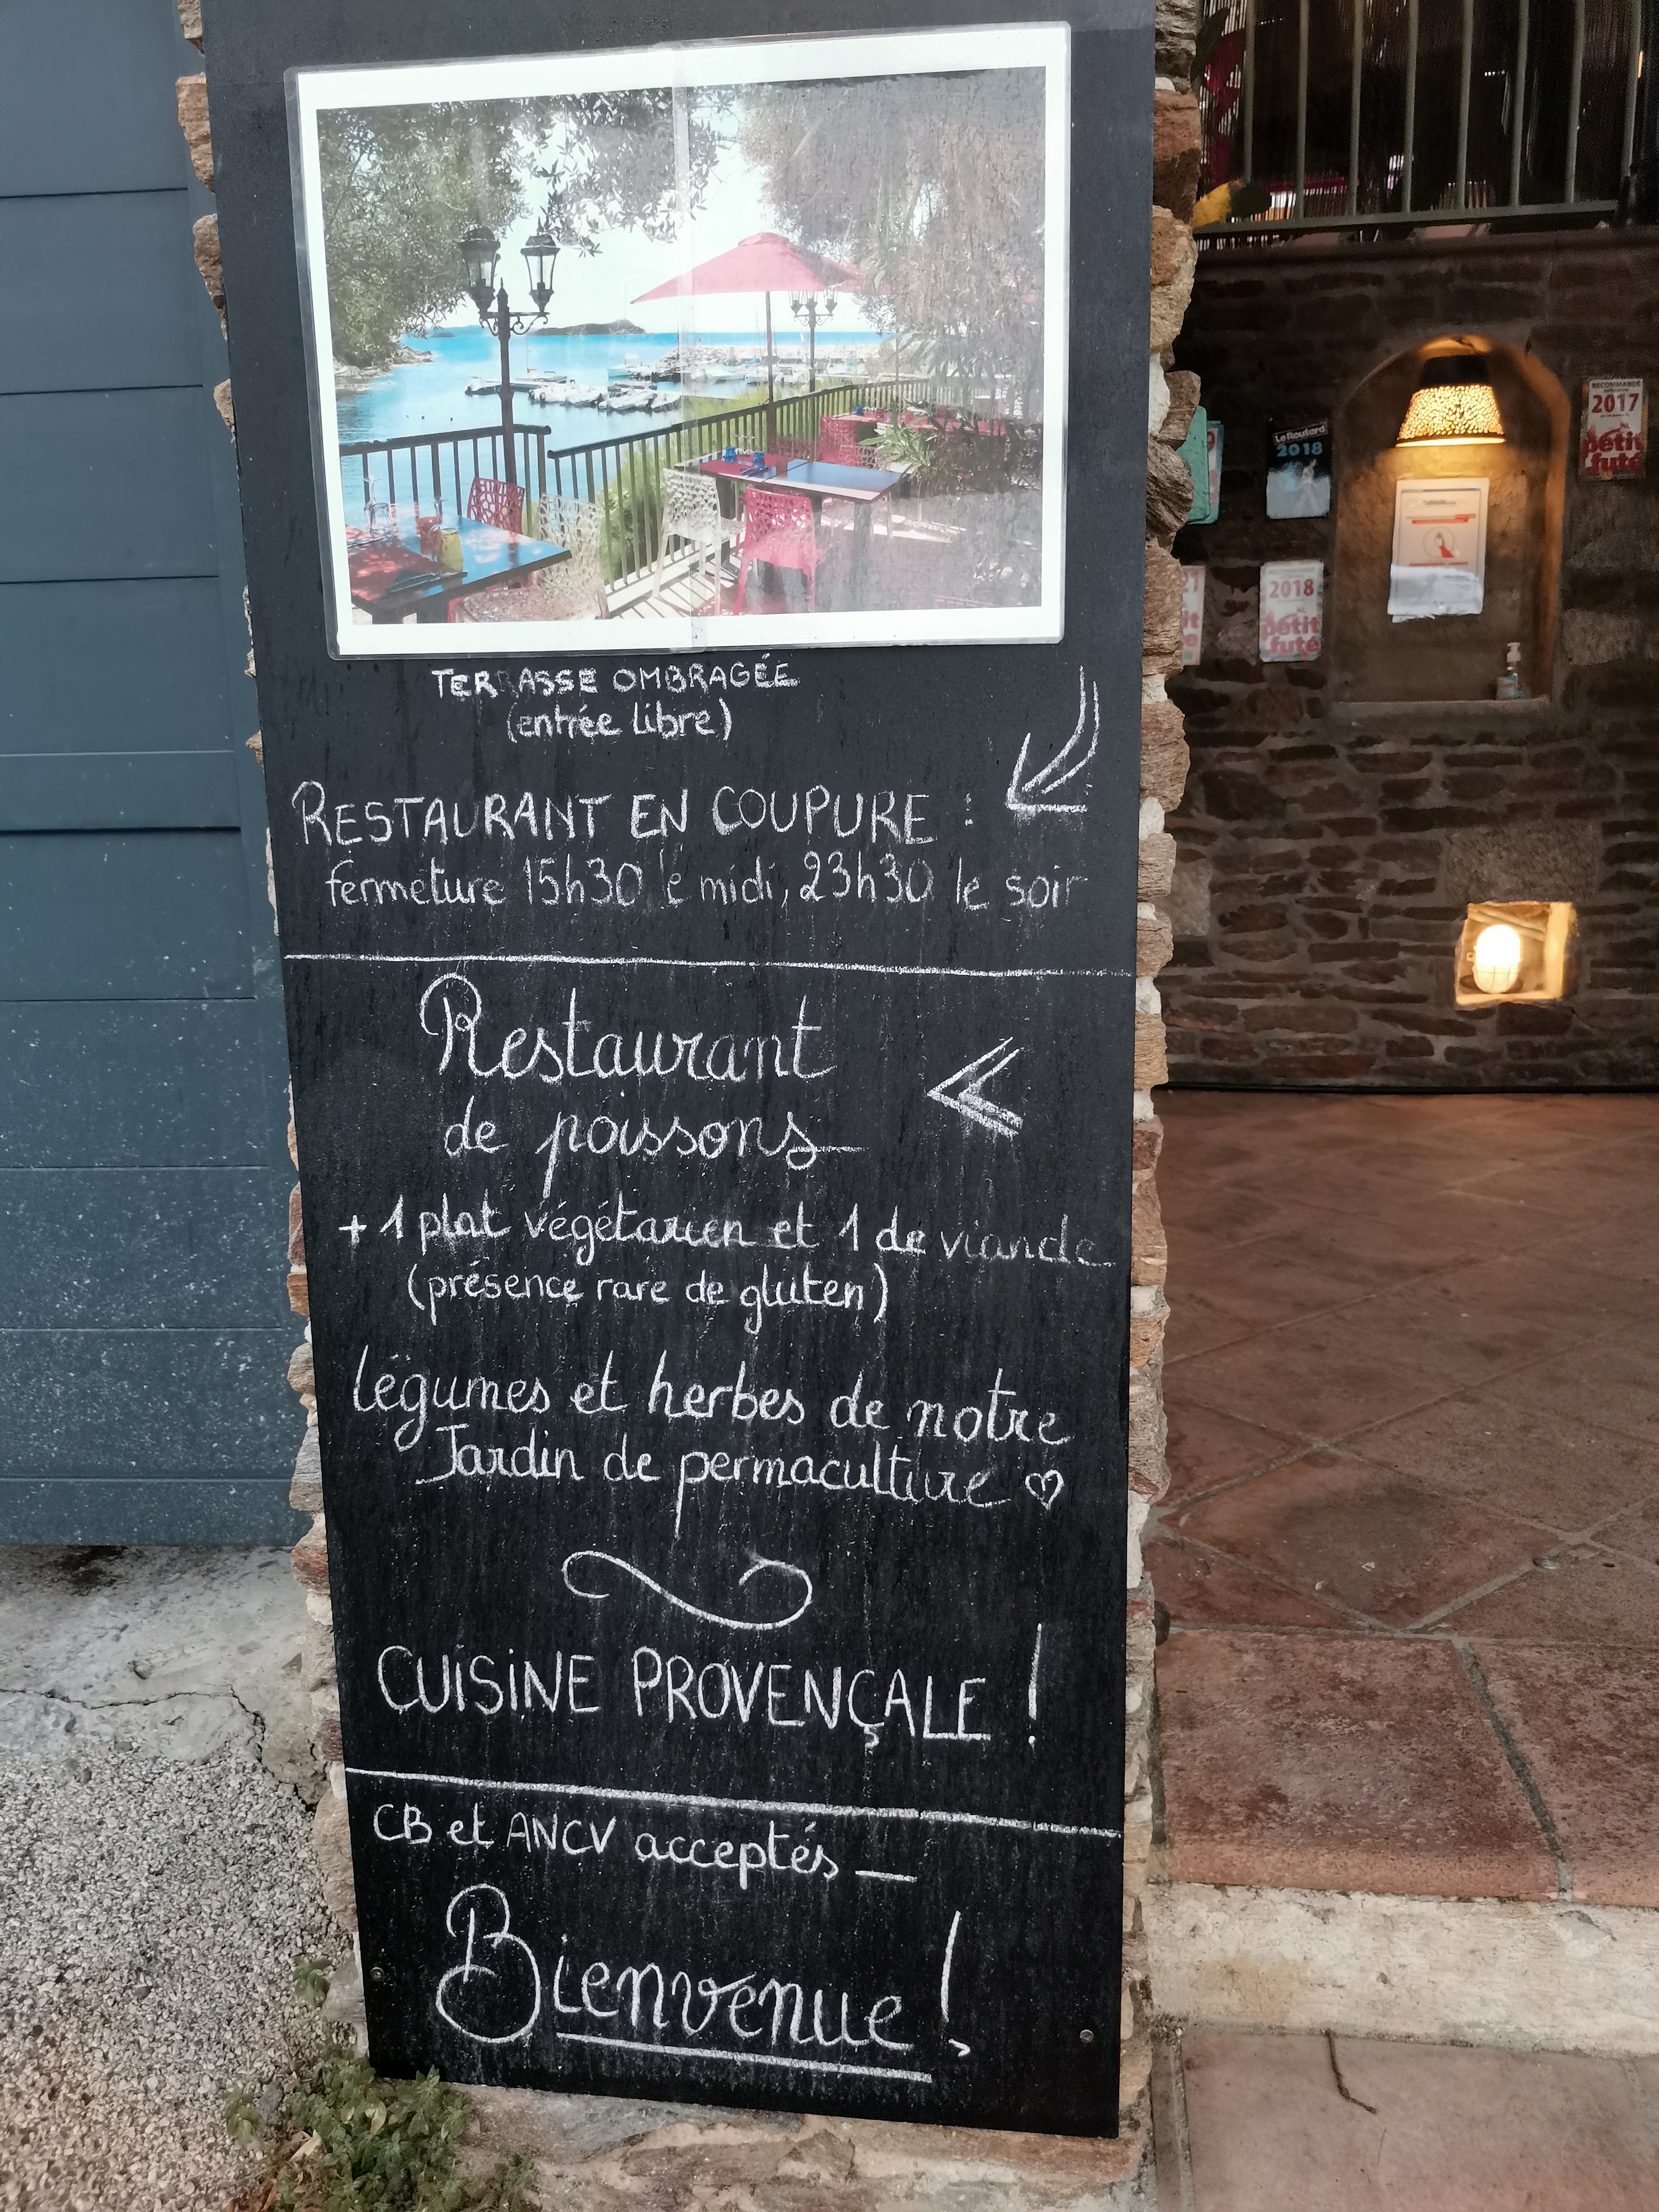 TERRASSE OMBRAGÉE
(entrée libre)
RESTAURANT EN COUPURE :
fermeture 15h30 le midi, 23h30 le soir
Restaurant
de poissons
+ 1 plat végétarien et 1 de viande
(présence rare de gluten)
légumes et herbes de notre
Jardin de permaculture ♡
CUISINE PROVENÇALE !
CB et ANCV acceptés _
Bienvenue !
Le Routard
2018
RECOMMANDÉ
2017
petit
futé
2018
petit
futé